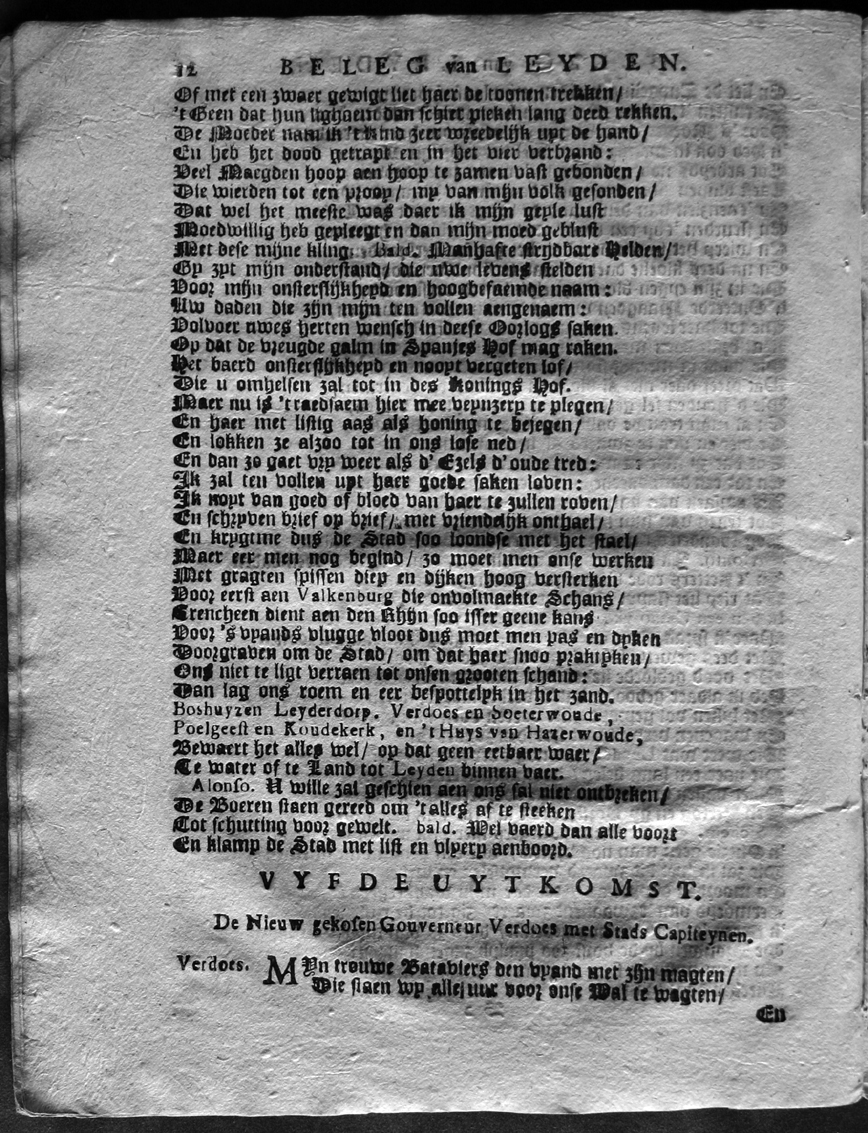 12 BELEG van LEYDEN.
Of met een zwaer gewigt liet haer de toonen trekken/
't Geen dat hun lighaem dan schier pieken lang deed rekken.
De Moeder nam ik 't kind zeer wreedelijk uyt de hand/
En heb het dood getrapt en in het vier verbrand:
Veel Maegden hoop aen hoop te zamen vast gebonden/
Die wierden tot een proop/ my van mijn volk gesonden/
Dat wel het meeste was daer ik mijn geyle lust
Moedwillig heb gepleegt en dan mijn moed geblust
Met dese mijne kling. Bald. Manhafte strydbare Helden/
Gy zyt mijn onderstand/ die uwe levens stelden
Voor mijn onsterflijkheyd en hoogbefaemde naam:
Uw daden die zijn mijn ten vollen aengenaem:
Volvoer uwes herten wensch in deese Oorlogs saken.
Op dat de vreugde galm in Spanjes Hof mag raken.
Het baerd onsterflijkheyd en nooyt vergeten lof/
Die u omhelsen zal tot in des Konings Hof.
Maer nu is 't raedsaem hier mee veynzery te plegen/
En haer met listig aas als honing te bejegen/
En lokken ze alzoo tot in ons lose ned/
En dan zo gaet vry weer als d' Ezels d' oude tred:
Ik zal ten vollen uyt haer goede saken loven:
Ik nopt van goed of bloed van haer te zullen roven/
En schryven brief op brief/ met vriendelijk onthael/
En krygtme dus de Stad soo loondse met het stael/
Maer eer men nog begind/ zo moet men onse werken
Met gragten spissen diep en dijken hoog versterken
Voor eerst aen Valkenburg die onvolmaekte Schans/
Trencheen dient aen den Rhijn soo isser geene kans
Voor 's vyands vlugge vloot dus moet men pas en dyken
Doorgraven om de Stad/ om dat haer snoo praktyken/
Ons niet te ligt verraen tot onsen grooten schand:
Dan lag ons roem en eer bespottelyk in het zand.
Boshuyzen Leyderdorp. Verdoes en Soeterwoude,
Poelgeest en Koudekerk, en 't Huys van Hazerwoude,
Bewaert het alles wel/ op dat geen eetbaer waer/
Te water of te Land tot Leyden binnen vaer.
Alonso. U wille zal geschien aen ons sal niet ontbreken/
De Boeren staen gereed om 't alles af te steeken
Tot schutting voor gewelt. bald. Wel vaerd dan alle voort
En klamp de Stad met list en vlyery aenboord.
VYFDE UYTKOMST.
De Nieuw gekosen Gouverneur Verdoes met Stads Capiteynen.
Verdoes. MYn trouwe Bataviers den vyand met zijn magten/
Die staen wy alle uur voor onse Wal te wagten/
En